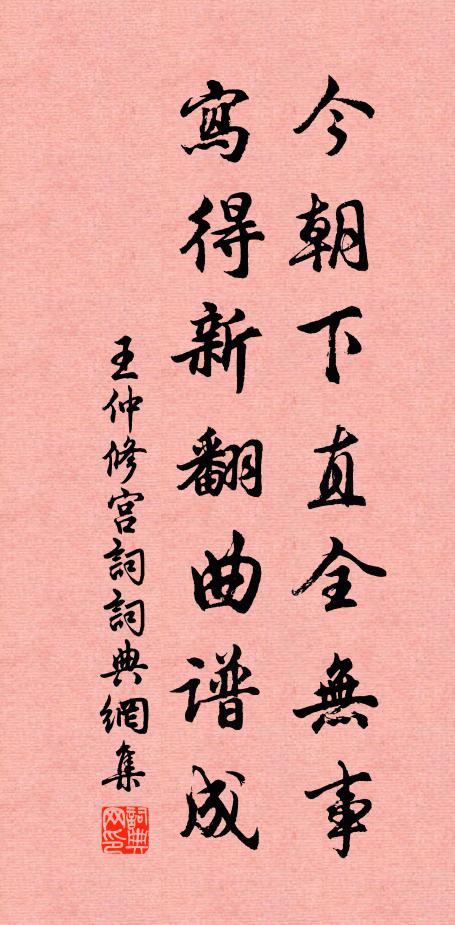 今朝下直全無事
寫得新翻曲譜成
王仲修宫詞詞典網集
詞典网印